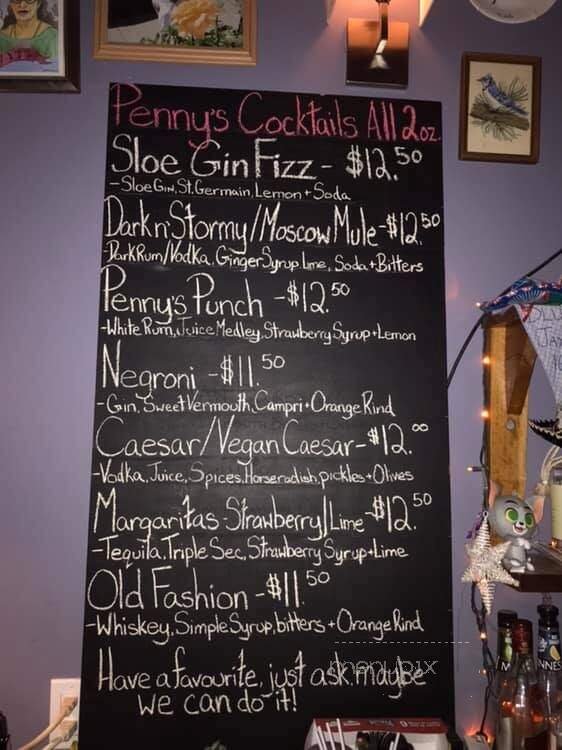 Penny's Cocktails All 2oz.
Sloe Gin Fizz - $12.50
- Sloe Gin, St. Germain, Lemon + Soda
Dark n' Stormy/Moscow Mule - $12.50
- Dark Rum/Vodka, Ginger Syrup, Lime, Soda + Bitters
Penny's Punch - $12.50
- White Rum, Juice Medley, Strawberry Syrup + Lemon
Negroni - $11.50
- Gin, Sweet Vermouth, Campri + Orange Rind
Caesar/Vegan Caesar - $12.00
- Vodka, Juice, Spices, Horseradish, pickles + Olives
Margaritas - Strawberry/Lime - $12.50
- Tequila, Triple Sec, Strawberry Syrup + Lime
Old Fashion - $11.50
- Whiskey, Simple Syrup, bitters + Orange Rind
Have a favourite, just ask maybe
we can do it!
menupix